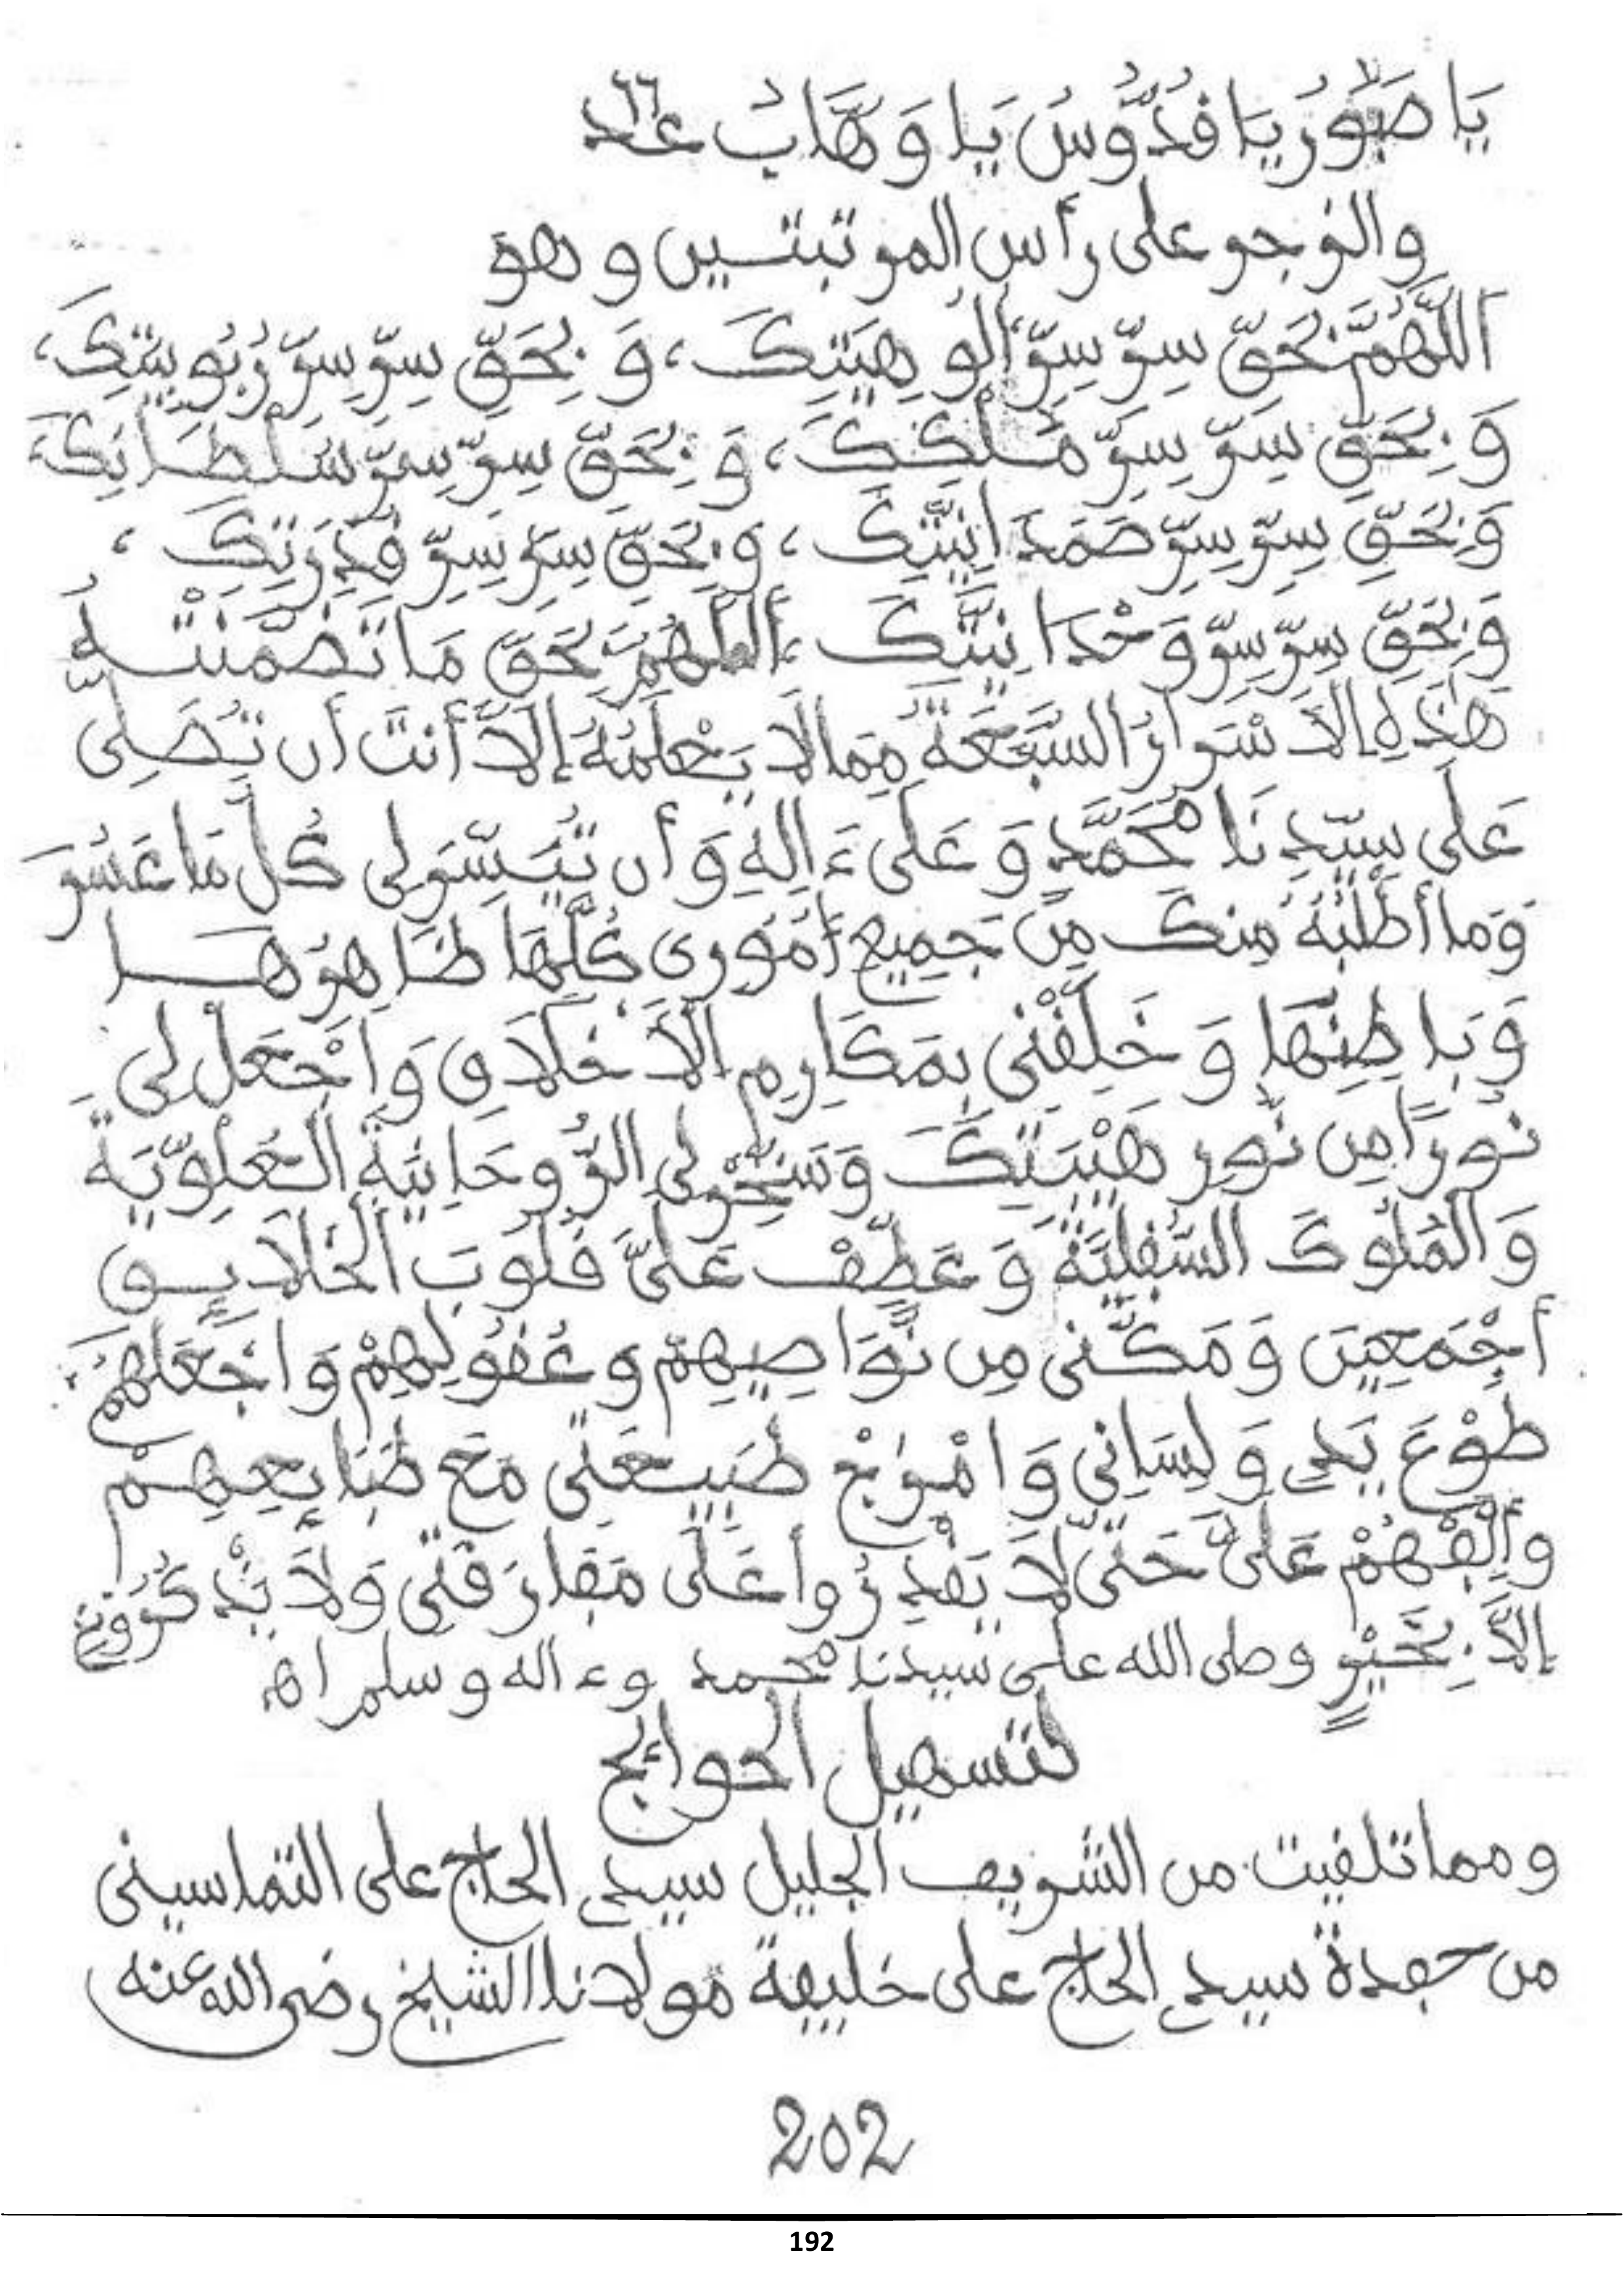 يَا صَبُورُ يَا قُدُّوسُ يَا وَهَّابُ عدد ٦٦
والزجر على رأس المرتبتين وهو
اَللَّهُمَّ بِحَقِّ سِرِّ سِرِّ أُلُوهِيَتِكَ، وَبِحَقِّ سِرِّ سِرِّ رُبُوبِيَتِكَ،
وَبِحَقِّ سِرِّ سِرِّ مُلْكِكَ، وَبِحَقِّ سِرِّ سِرِّ سُلْطَانِكَ،
وَبِحَقِّ سِرِّ سِرِّ صَمَدَانِيَّتِكَ، وَبِحَقِّ سِرِّ سِرِّ قُدْرَتِكَ،
وَبِحَقِّ سِرِّ سِرِّ وَحْدَانِيَّتِكَ، أَللَّهُمَّ بِحَقِّ مَا تَضَمَّنَتْهُ
هَذِهِ الَاسْرَارُ السَّبْعَةُ مِمَّا لَا يَعْلَمُهُ إِلَّا أَنْتَ أن تُصَلِّى
عَلَى سَيِّدِنَا مُحَمَّدٍ وَعَلَى ءَالِهِ وَأن تُيَسِّرَ لِى كُلَّ مَا عَسُرَ
وَمَا أَطْلُبُهُ مِنكَ مِن جَمِيعِ أُمُورِى كُلِّهَا ظَاهِرُهَا
وَبَاطِنِهَا وَخَلِّقْنِى بِمَكَارِمِ الَاخْلَاقِ وَاجْعَلْ لِى
نُورًا مِن نُّورِ هَيْبَتِكَ وَسَخِّرْ لِى الرُّوحَانِيَةَ الْعُلْوِيَّةَ
وَالْمُلُوكَ السُّفْلِيَّةَ وَعَطِّفْ عَلَىَّ قُلُوبَ الْخَلَايِقِ
أَجْمَعِينَ وَمَكِّنِّى مِن نَّوَاصِيهِمْ وَعُقُولِهِمْ وَاجْعَلْهُمْ
طَوْعَ يَدِي وَلِسَانِى وَامْزِجْ طَبِيعَتِى مَعَ طَبَايِعِهِمْ
وَأَلِّفْهُمْ عَلَىَّ حَتَّى لَا يَقْدِرُوا عَلَى مُفَارَقَتِى وَلَا يَذْكُرُونِى
إِلَّا بِخَيْرٍ وصلى الله على سيدنا محمد وءاله وسلم اهـ
لتسهيل الحوائج
ومما تلقيت من الشريف الجليل سيدي الحاج على التماسينى
من حفدة سيدي الحاج على خليفة مولانا الشيخ رضى الله عنه
202
192